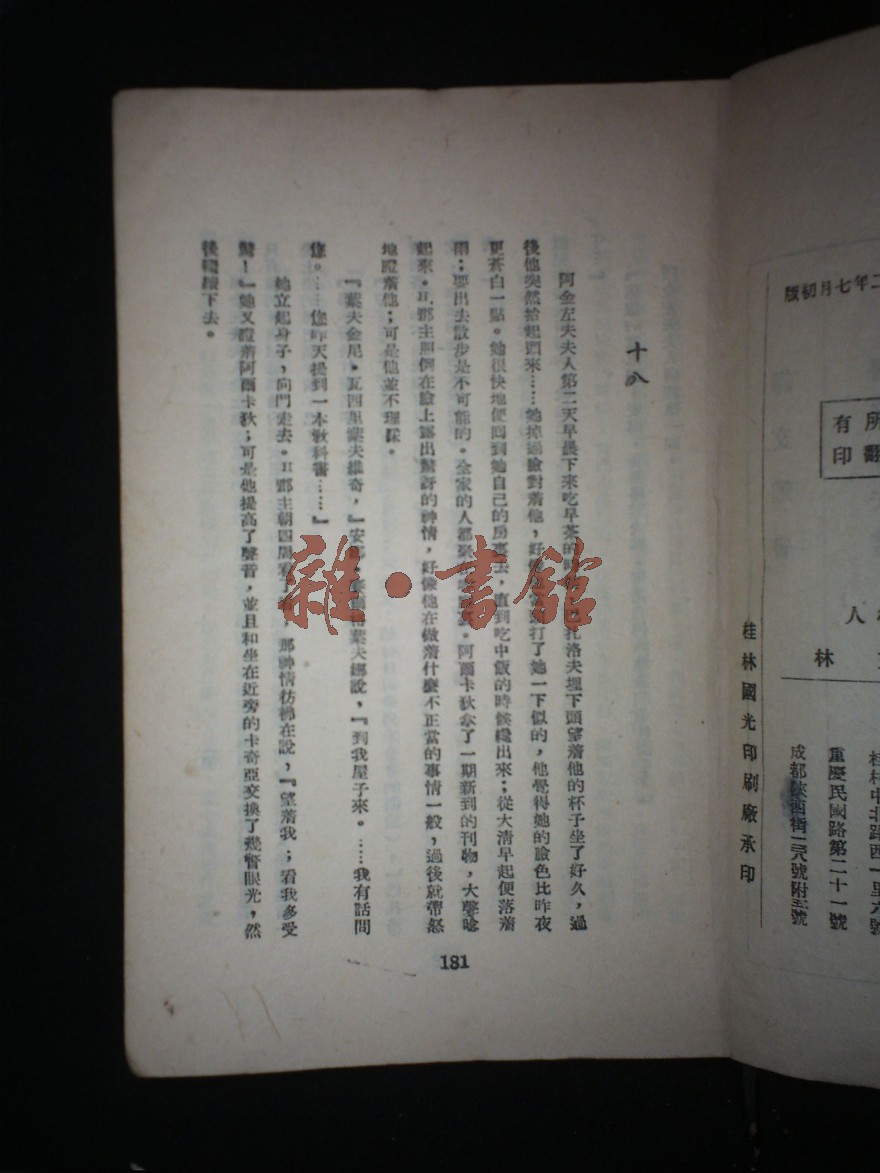 十八
阿金左夫夫人第二天早晨下來吃早茶的時候,巴扎洛夫埋下頭望着他的杯子坐了好久,過
後他突然抬起頭來……她掉過臉對着他,好像他打了她一下似的,他覺得她的臉色比昨夜
更蒼白一點。她很快地便回到她自己的房裏去,直到吃中飯的時候纔出來;從大清早起便落着
雨;要出去散步是不可能的。全家的人都聚在客廳裏。阿爾卡狄拿了一期新到的刊物,大聲唸
起來。H郡主照例在臉上露出驚訝的神情,好像他在做着什麼不正當的事情一般,過後就帶怒
地瞪着他;可是他並不理睬。
『葉夫金尼·瓦西里葉夫維奇,』安娜·塞爾格葉夫娜說,『到我屋子來。……我有話問
您。……您昨天提到一本教科書……』
她立起身子,向門走去。H郡主朝四周看了看,那神情彷彿在說,『望着我;看我多受
驚!』她又瞪着阿爾卡狄;可是他提高了聲音,並且和坐在近旁的卡奇亞交換了幾瞥眼光,然
後繼續下去。
181
雜·書舘
二年七月初版
所
有
翻
印
人
林
桂林國光印刷廠承印
桂林中北路西一里六號
重慶民國路第二十一號
成都陝西街三八號附五號